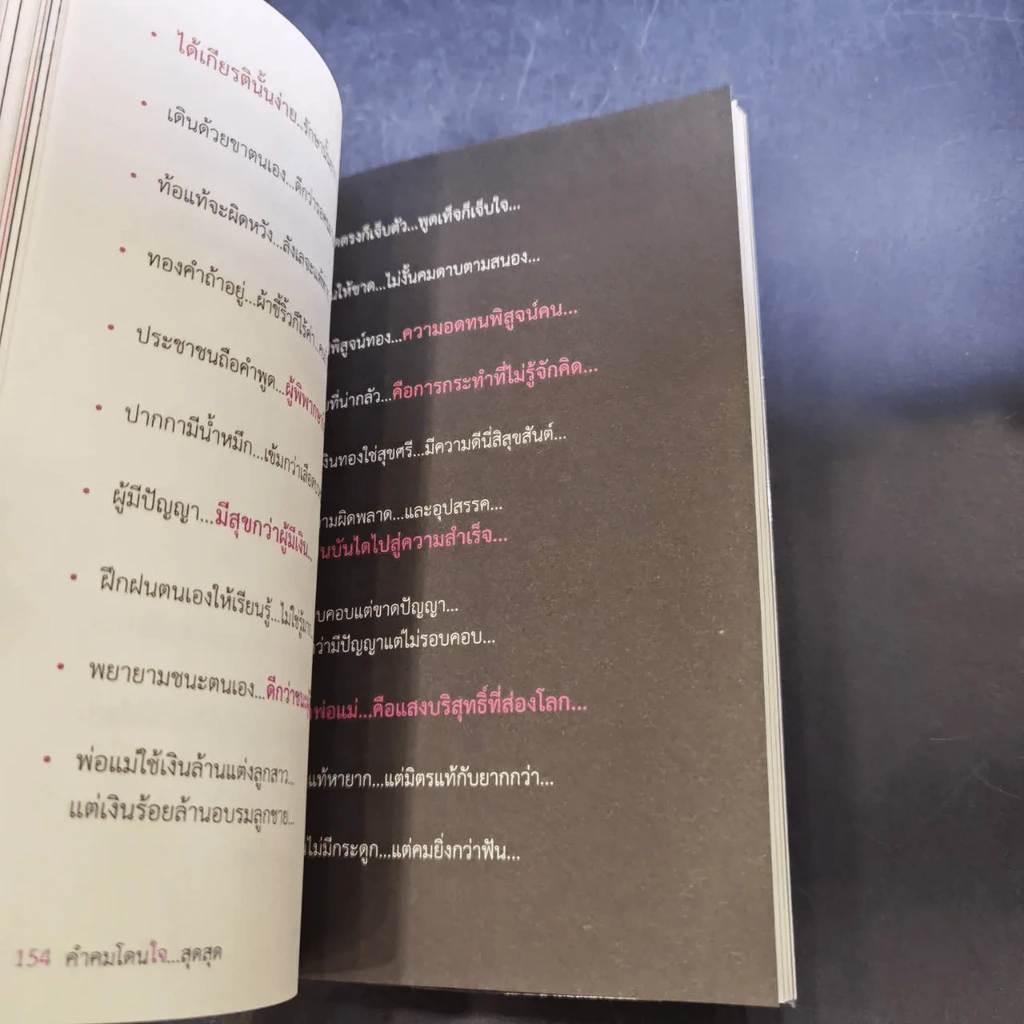 • ได้เกียรตินั้นง่าย...รักษานั้น
• เดินด้วยขาตนเอง...ดีกว่า
• ท้อแท้จะผิดหวัง...ลังเลจะ
• ทองคำถ้าอยู่...ผ้าขี้ริ้วก็ไร้ค่า
• ประชาชนถือคำพูด...ผู้พิพากษา
• ปากกามีน้ำหมึก...เข้มกว่าเลือด
• ผู้มีปัญญา...มีสุขกว่าผู้มีเงิน...
• ฝึกฝนตนเองให้เรียนรู้...ไม่ใช่รู้
• พยายามชนะตนเอง...ดีกว่าชนะ
• พ่อแม่ใช้เงินล้านแต่งลูกสาว...
แต่เงินร้อยล้านอบรมลูกชาย...
154 คำคมโดนใจ...สุดสุด
ตรงก็เจ็บตัว...พูดเท็จก็เจ็บใจ...
ให้ขาด...ไม่งั้นคมดาบตามสนอง...
พิสูจน์ทอง...ความอดทนพิสูจน์คน...
ที่น่ากลัว...คือการกระทำที่ไม่รู้จักคิด...
เงินทองใช่สุขศรี...มีความดีนี่สิสุขสันต์...
ามผิดพลาด...และอุปสรรค...
นบันไดไปสู่ความสำเร็จ...
บคอบแต่ขาดปัญญา...
ว่ามีปัญญาแต่ไม่รอบคอบ...
พ่อแม่...คือแสงบริสุทธิ์ที่ส่องโลก...
แท้หายาก...แต่มิตรแท้กับยากกว่า...
ไม่มีกระดูก...แต่คมยิ่งกว่าฟัน...